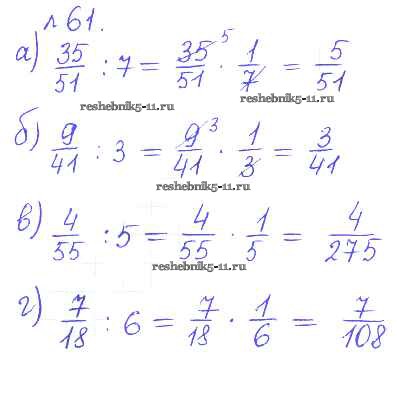 № 61.
а) 35/51 : 7 = 35/51 · 1/7 = 5/51
5
reshebnik5-11.ru
reshebnik5-11.ru
б) 9/41 : 3 = 9/41 · 1/3 = 3/41
3
reshebnik5-11.ru
в) 4/55 : 5 = 4/55 · 1/5 = 4/275
reshebnik5-11.ru
г) 7/18 : 6 = 7/18 · 1/6 = 7/108